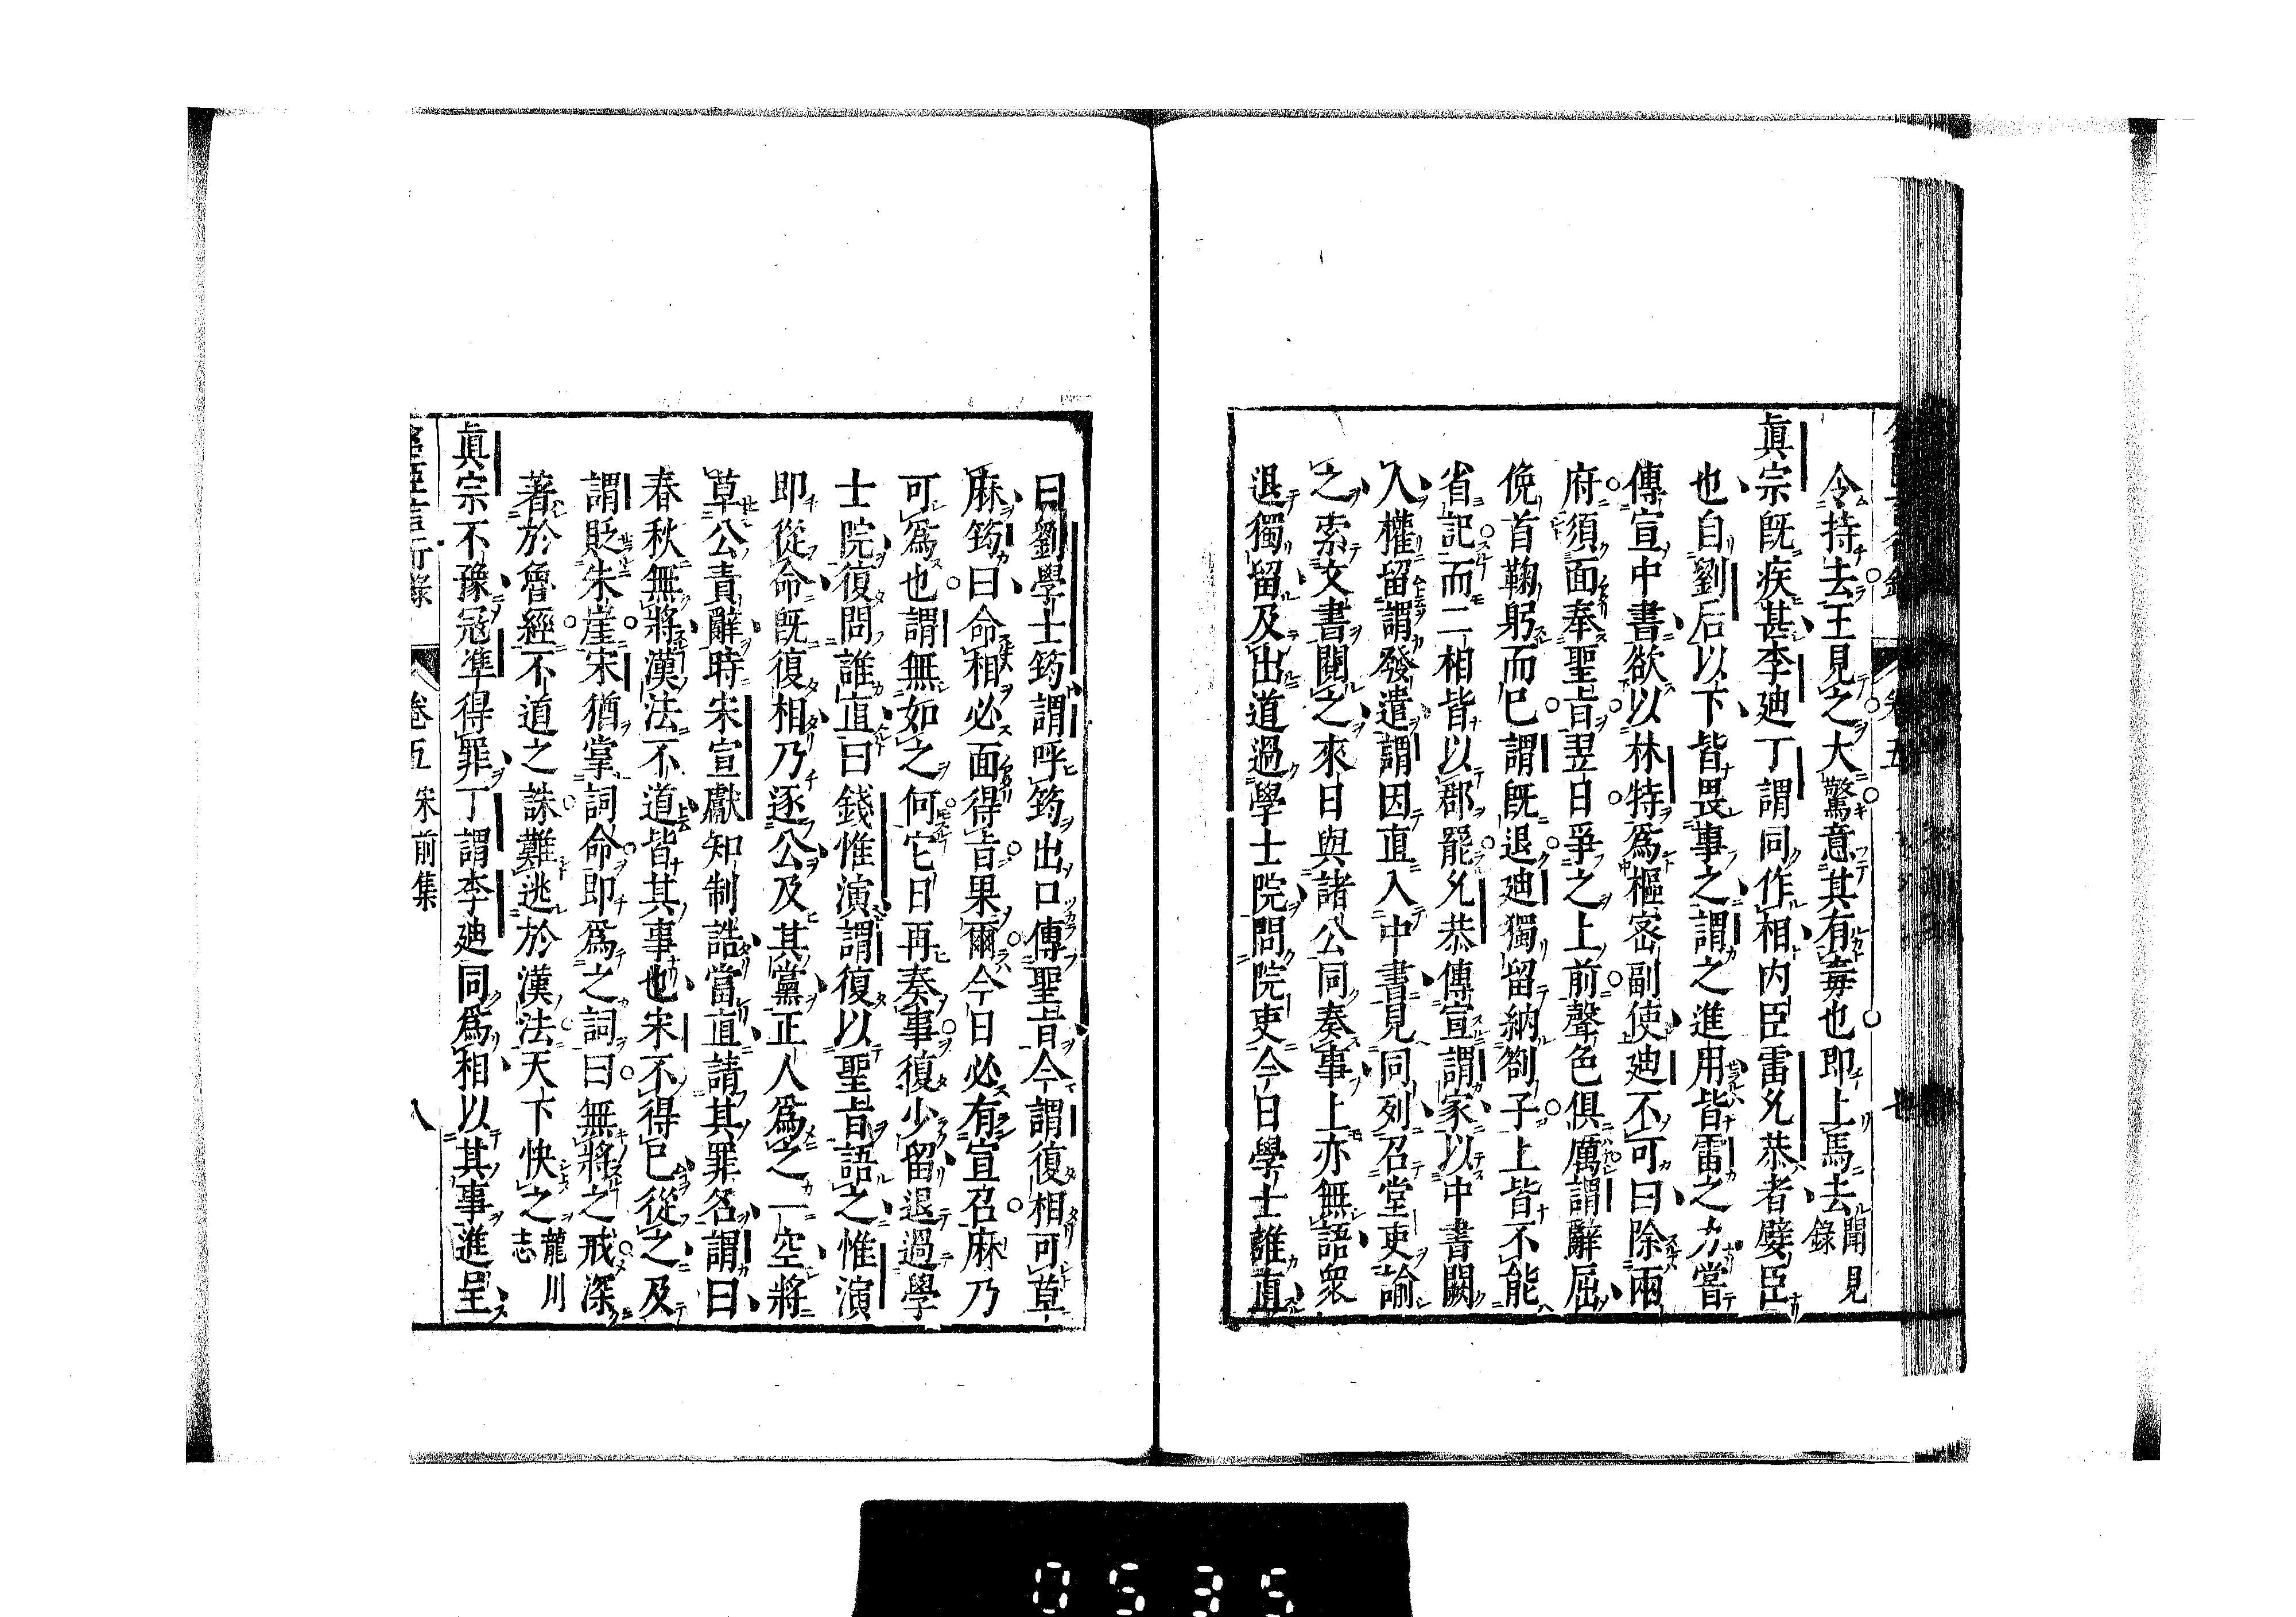 令持去王見之大驚意其有毒也即上馬去聞見錄
眞宗既疾甚李迪丁謂同作相内臣雷允恭者嬖臣
也自劉后以下皆畏事之謂之進用皆雷之力嘗
傳宣中書欲以林特爲樞密副使迪不可曰除兩
府須面奉聖旨翌日爭之上前聲色俱厲謂辭屈
俛首鞠躬而已謂既退迪獨留納劄子上皆不能
省記而二相皆以郡罷允恭傳宣謂家以中書闕
人權留謂發遣謂因直入中書見同列召堂吏諭
之索文書閱之來日與諸公同奏事上亦無語衆
退獨留及出道過學士院問院吏今日學士誰直
曰劉學士筠謂呼筠出口傳聖旨令謂復相可草
麻筠曰命相必面得旨果爾今日必有宣召麻乃
可爲也謂無如之何它日再奏事復少留退過學
士院復問誰直曰錢惟演謂復以聖旨語之惟演
即從命既復相乃逐公及其黨正人爲之一空將
草公責辭時宋宣獻知制誥當直請其罪名謂曰
春秋無將漢法不道皆其事也宋不得已從之及
謂貶朱崖宋猶掌詞命即爲之詞曰無將之戒深
著於魯經不道之誅難逃於漢法天下快之龍川志
眞宗不豫冦準得罪丁謂李迪同爲相以其事進呈
卷五 宋前集 八
0535